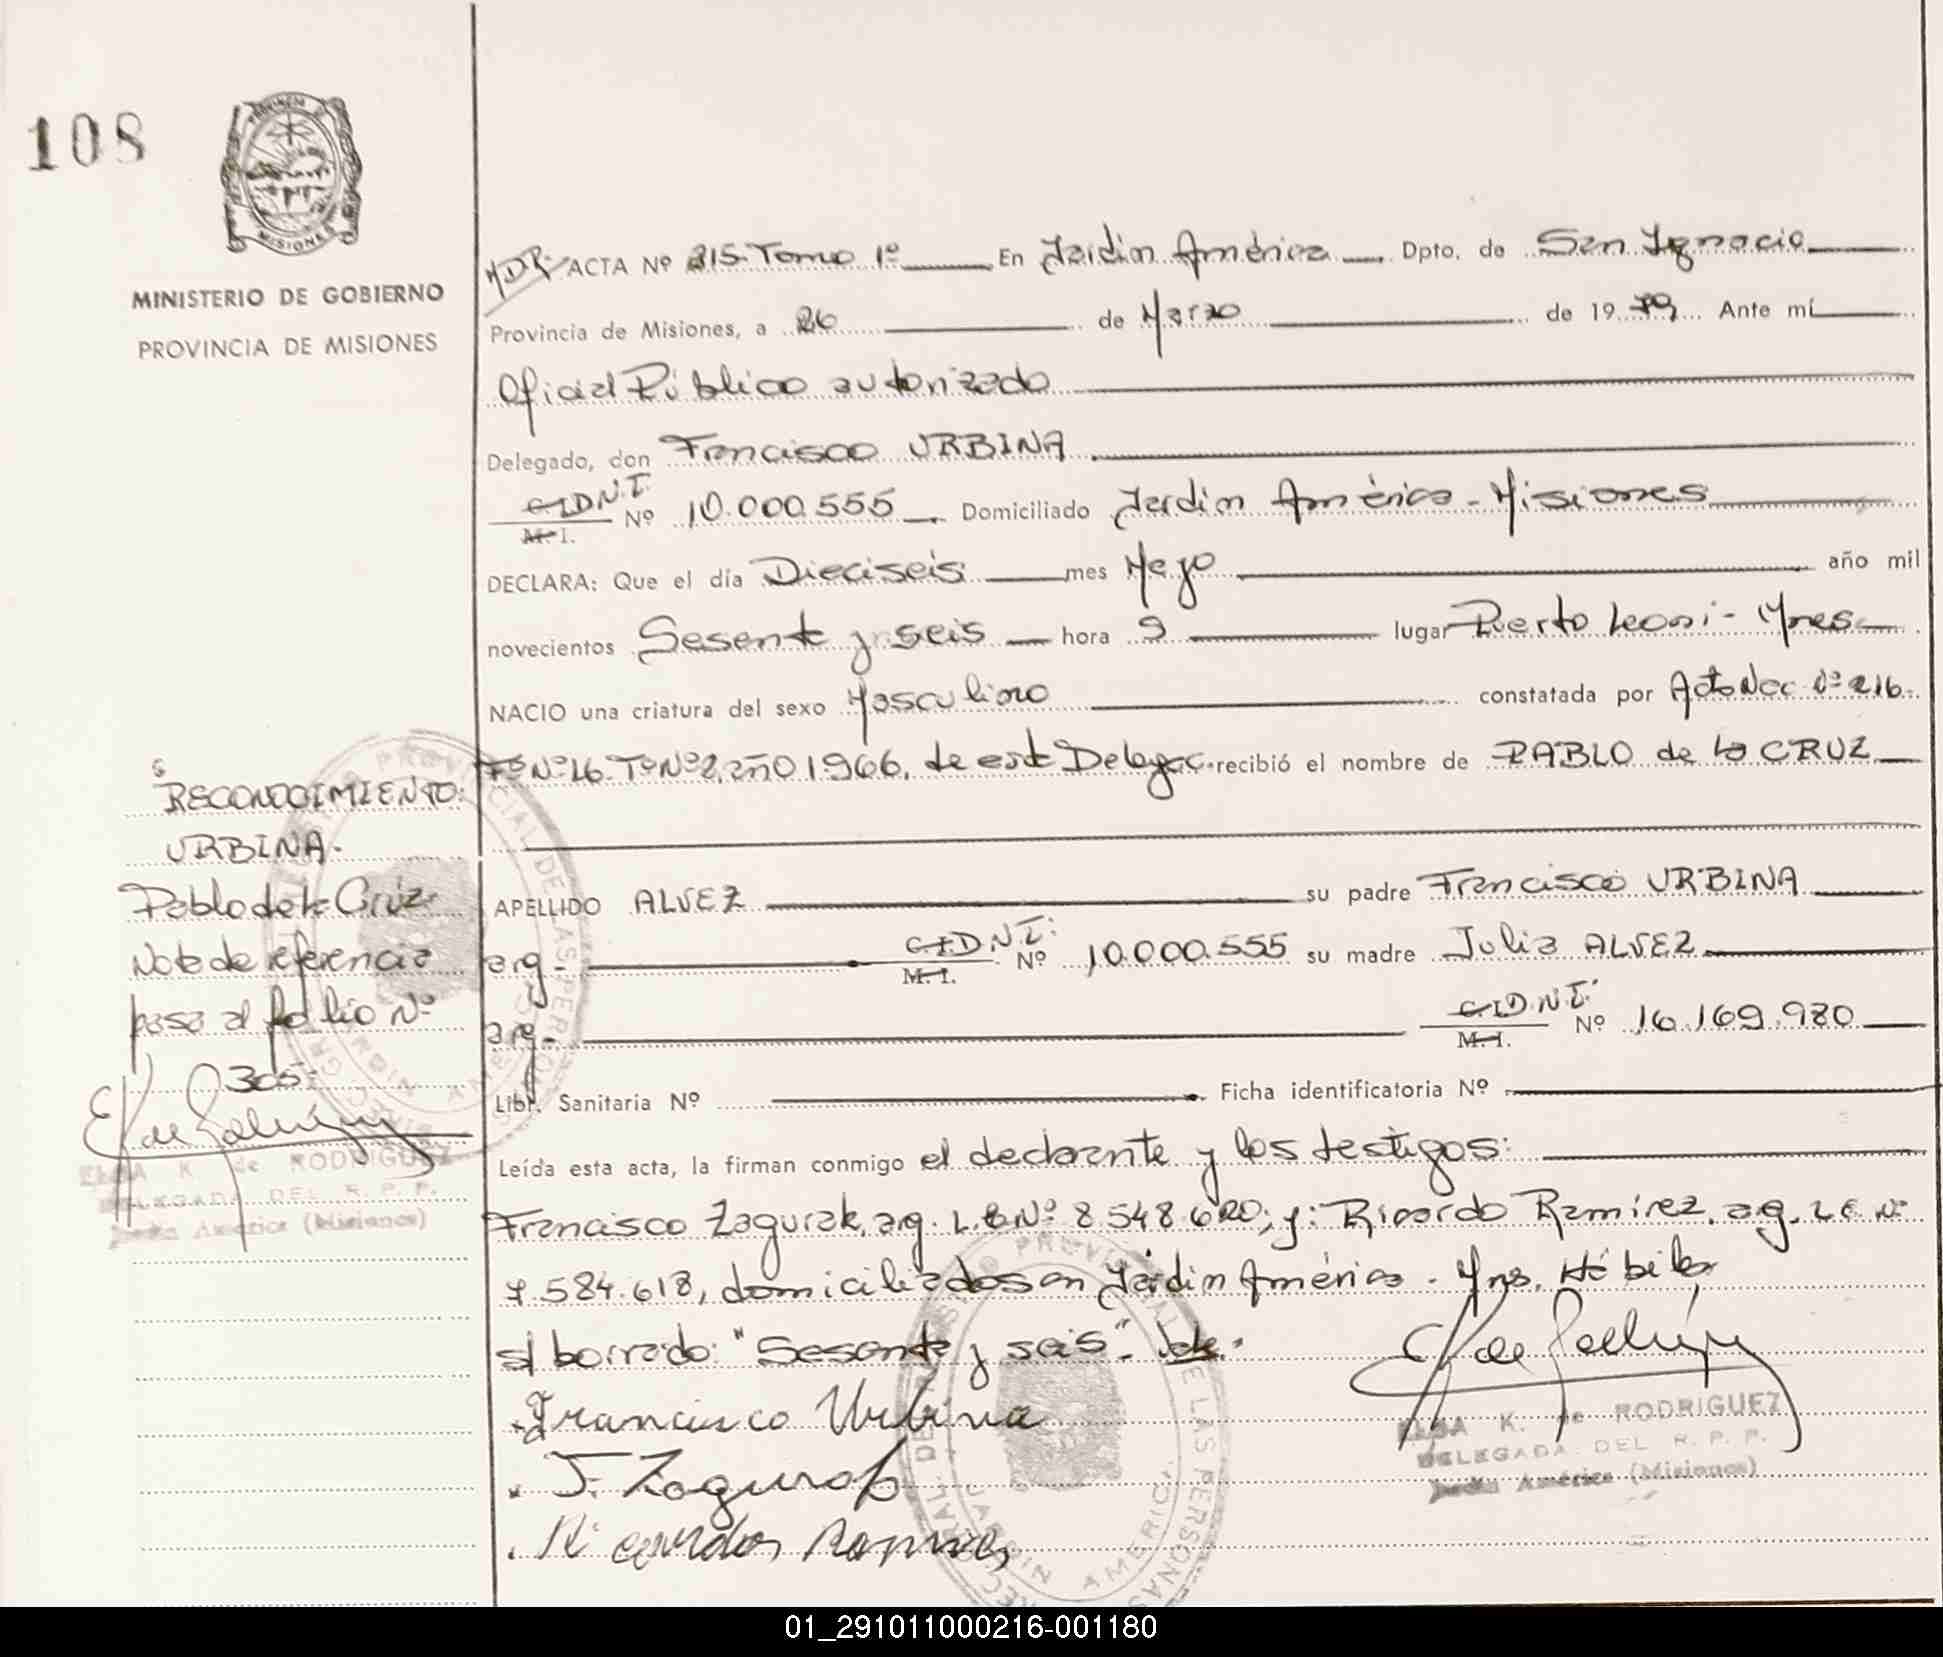 108
MINISTERIO DE GOBIERNO
PROVINCIA DE MISIONES
ACTA Nº 215 Tomo 1º En Jardín América Dpto. de San Ignacio
Provincia de Misiones, a 26 de Marzo de 1979 Ante mí
Oficial Público autorizado
Delegado, don Francisco URBINA
C.I. D.N.I. M.I. Nº 10.000.555 Domiciliado Jardín América - Misiones
DECLARA: Que el día Dieciseis mes Mayo año mil
novecientos Sesenta y seis hora 9 lugar Puerto Leoni - Mnes
NACIO una criatura del sexo Masculino constatada por Acta Nac. Nº 216
Fº Nº 16 Tº Nº 2, año 1966, de esta Delegac. recibió el nombre de PABLO de la CRUZ
APELLIDO ALVEZ su padre Francisco URBINA
arg. C.I. D.N.I. M.I. Nº 10.000.555 su madre Julia ALVEZ
arg. C.I. D.N.I. M.I. Nº 16.169.980
Libr. Sanitaria Nº Ficha identificatoria Nº
Leída esta acta, la firman conmigo el declarante y los testigos:
Francisco Zagurak, arg. L.E Nº 8.548.620; y: Ricardo Ramírez, arg. L E Nº
7.584.618, domiciliados en Jardín América - Mnes. Hábiles
s/ borrado: "Sesenta y seis". Vale.
Francisco Urbina
F. Zagurak
Ricardo Ramirez
RECONOCIMIENTO:
URBINA.
Pablo de la Cruz
Nota de referencia
pasa al folio Nº
305
ELBA K. de RODRIGUEZ
DELEGADA DEL R. P. P.
Jardín América (Misiones)
ELBA K. de RODRIGUEZ
DELEGADA DEL R. P. P.
Jardín América (Misiones)
01_291011000216-001180